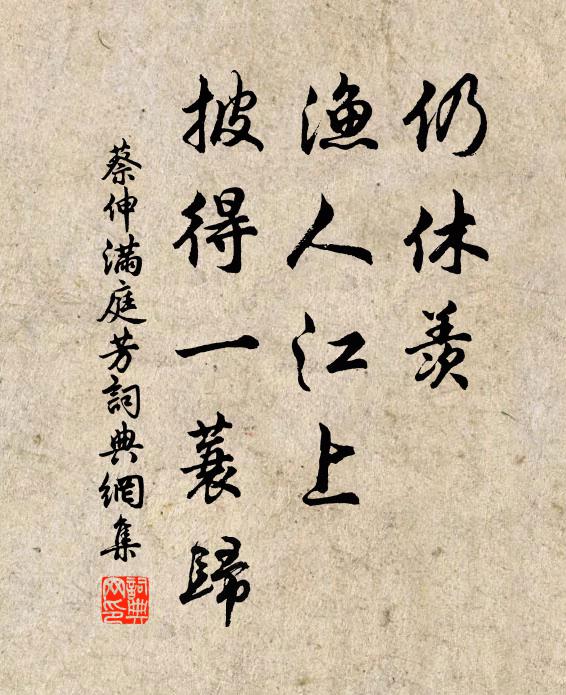 仍休羨
漁人江上
披得一蓑歸
蔡伸滿庭芳詞典網集
詞典網印